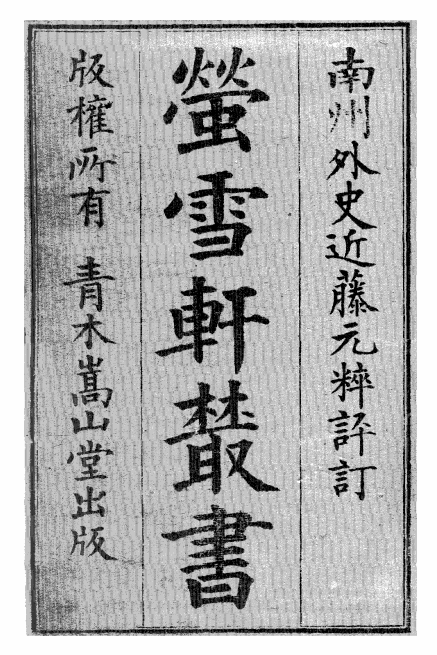 南州外史近藤元粹評訂
螢雪軒叢書
版權所有 青木嵩山堂出版